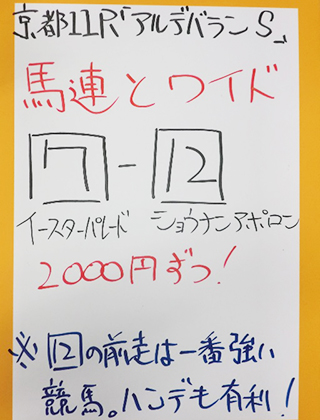 京都11R「アルデバランS」
馬連とワイド
7-12
イースターパレード ショウナンアポロン
2000円ずつ!
※12の前走は一番強い
競馬。ハンデも有利!